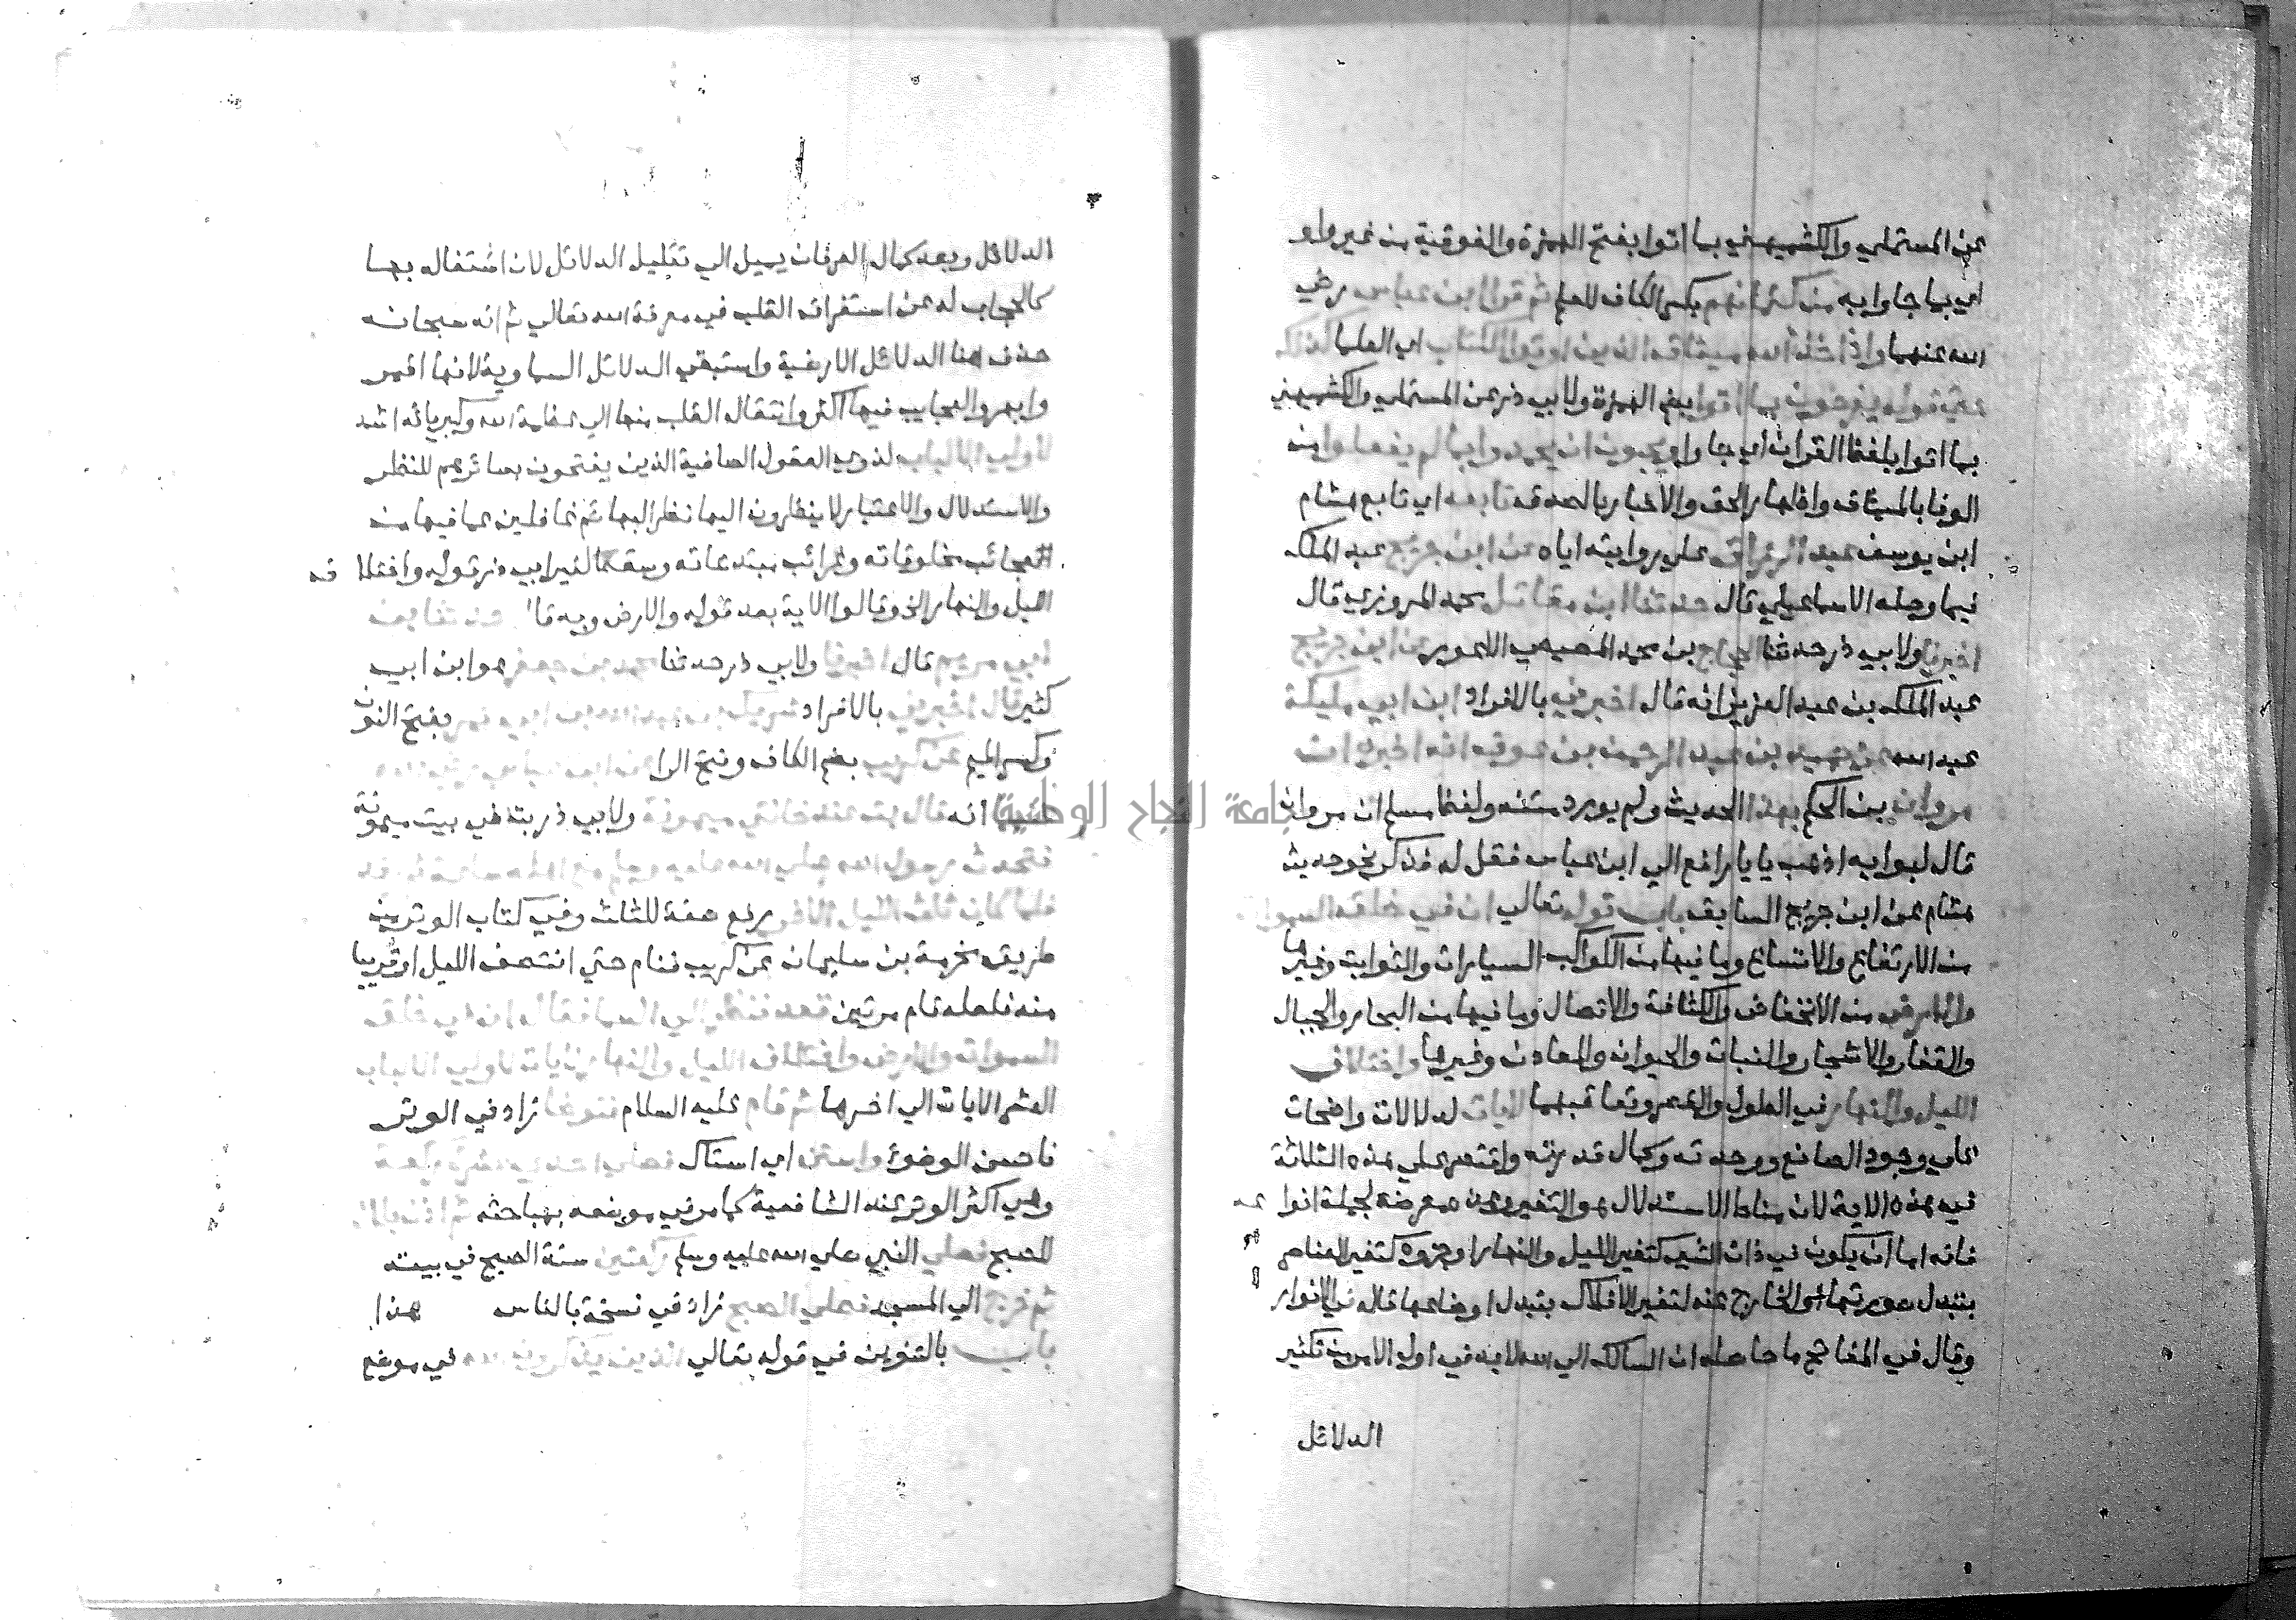 عن المستملي والكشميهني بما اتوا بفتح الهمزة والفوقية من غير واو
اي بما جاوا به من كتمانهم بكسر الكاف للعلم ثم قرا ابن عباس رضي
الله عنهما واذ اخذ الله ميثاق الذين اوتوا الكتاب اي العلما كذلك
حتي قوله يفرحون بما اتوا بضم الهمزة ولابي ذر عن المستملي والكشميهني
بما اتوا بلفظ القران اي جاوا ويحبون ان يحمدوا بما لم يفعلوا من
الوفا بالميثاق واظهار الحق والاخبار بالصدق تابعه اي تابع هشام
ابن يوسف عبد الرزاق علي روايته اياه عن ابن جريج عبد الملك
فيما وصله الاسماعيلي قال حدثنا ابن مقاتل محمد المروزي قال
اخبرنا ولابي ذر حدثنا الحجاج بن محمد المصيصي الاعور عن ابن جريج
عبد الملك بن عبد العزيز انه قال اخبرني بالافراد ابن ابي مليكة
عبد الله عن حميد بن عبد الرحمن بن عوف انه اخبره ان
مروان بن الحكم بهذا الحديث ولم يورد متنه ولفظ مسلم ان مروان
قال لبوابه اذهب يا رافع الي ابن عباس فقل له فذكر نحو حديث
هشام عن ابن جريج السابق باب قوله تعالي ان في خلق السموات
من الارتفاع والاتساع وما فيها من الكواكب السيارات والثوابت وغيرها
والارض من الانخفاض والكثافة والاتصال وما فيها من البحار والجبال
والقفار والاشجار والنبات والحيوان والمعادن وغيرها واختلاف
الليل والنهار في الطول والقصر وتعاقبهما لايات لدلالات واضحات
علي وجود الصانع ووحدته وكمال قدرته واقتصر علي هذه الثلاثة
في هذه الاية لان مناط الاستدلال هو التغير وهذه معرضة لجملة انوا عه
فانه اما ان يكون في ذات الشي كتغير الليل والنهار او جزوه كتغير العناصر
بتبدل صورتها او الخارج عنه لتغير الافلاك بتبدل اوضاعها قاله في الانوار
وقال في المفاتح ما حاصله ان السالك الي الله لابد في اول الامر من تكثير
الدلائل
الدلائل وبعد كمال العرفان يميل الي تقليل الدلائل لان اشتغاله بها
كالحجاب له عن استغراق القلب في معرفة الله تعالي ثم انه سبحانه
حذف هنا الدلائل الارضية واستبقي الدلائل السماوية لانها اقهر
وابهر والعجايب فيها اكثر وانتقال القلب منها الي عظمة الله وكبريائه اشد
لاولي الالباب لذوي العقول الصافية الذين يفتحون بصائرهم للنظر
والاستدلال والاعتبار لا ينظرون اليها نظر البهائم غافلين عما فيها من
عجائب مخلوقاته وغرائب مبتدعاته وسقط لغير ابي ذر قوله واختلا ف
الليل والنهار الخ وقالوا الاية بعد قوله والارض وبه قا
قال ولابي ذر حدثنا هو ابن ابي
كثير قال اخبرني بالافراد بفتح النون
وكسر الميم عن كريب بضم الكاف وفتح الرا
انه ولابي ذر بت في بيت ميمونة
برفع صفة للثلث وفي كتاب الوتر من
طريق مخرمة بن سليمان عن كريب فنام حتي انتصف الليل او قريبا
منه فلعله قام مرتين
العشر الايات الي اخرها ثم قام عليه السلام فتوضا زاد في الوتر
فاحسن الوضوء واستن اي استاك
وهي اكثر الوتر عند الشافعية كما مر في موضعه بمباحثه
للصبح فصلي النبي صلي الله عليه وسلم ركعتين سنة الصبح في بيته
ثم خرج الي المسجد زاد في نسخة بالناس هذا
باب بالتنوين في قوله تعالي في موضع